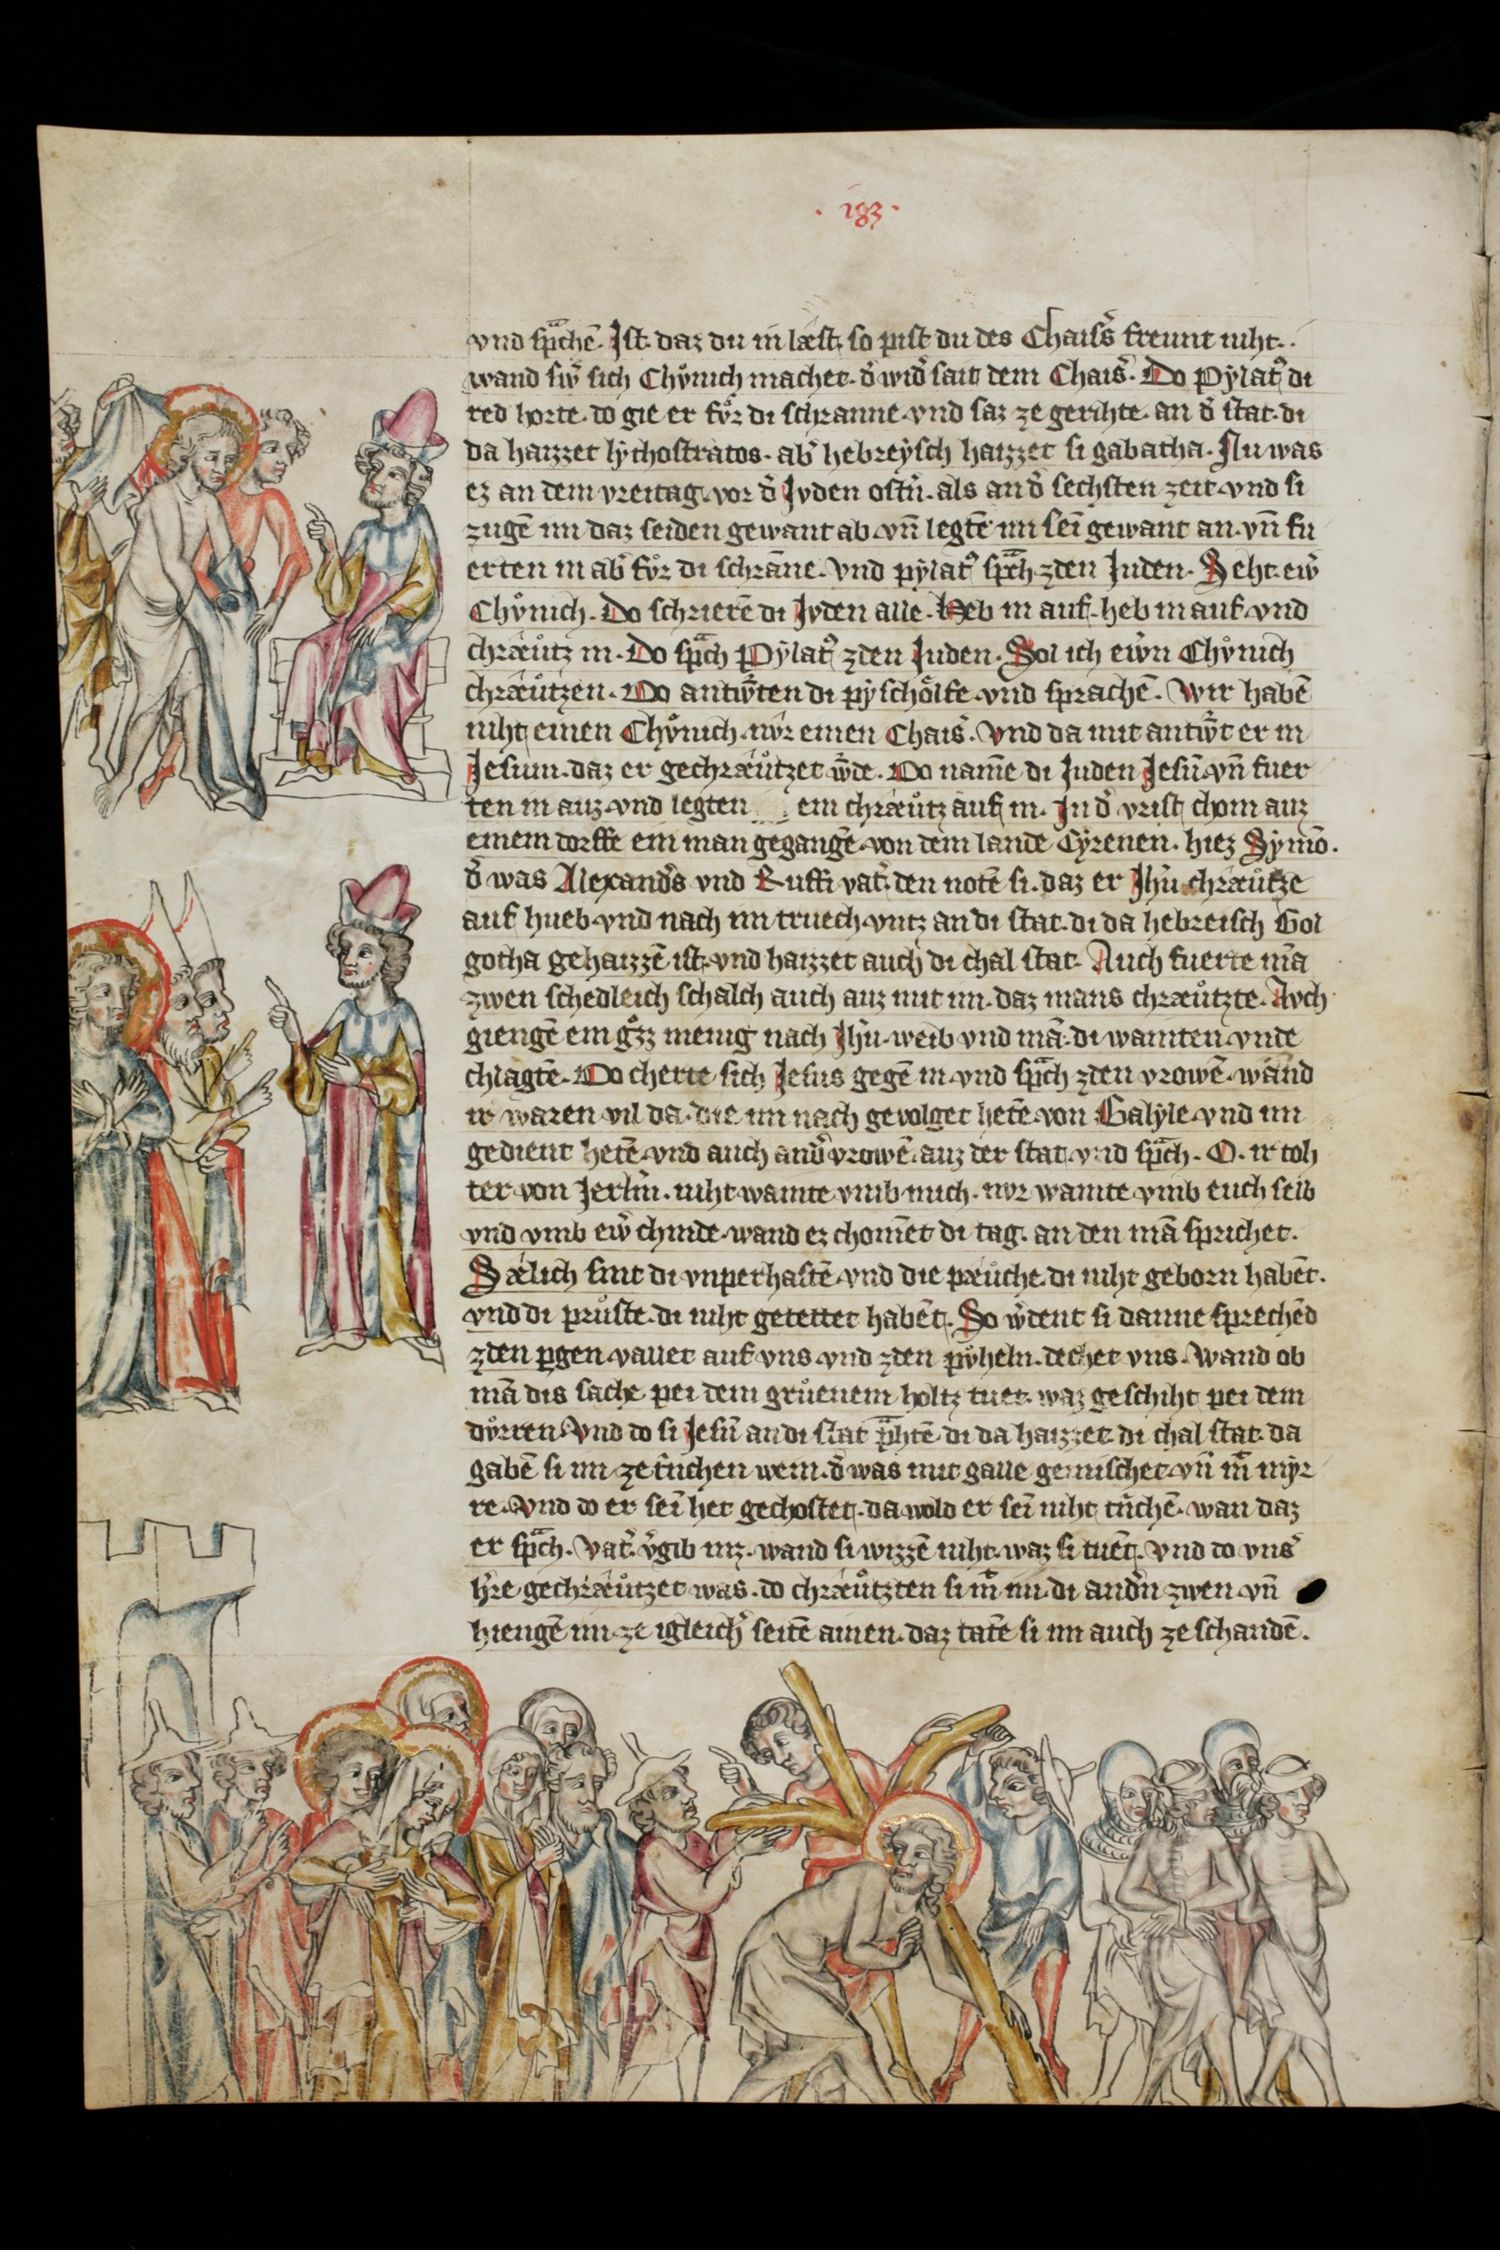 · 183 ·
vnd sp̄ͣchē. Jst daz du in læst, so pist du des Chais̾s frewnt niht.
wand sw̾ sich Chv̊nich machet. d̾ wid̾ sait dem Chais̾. Do Pẏlat9 di
red horte. do gie er fv̊r di schranne vnd saz ze gerihte. an d̾ stat. di
da haizzet lẏchostratos. ab̾ hebreẏsch haizzet si gabatha. Nu was
ez an dem vreitag. vor d̾ Jvden ost̾n. als an d̾ sechsten zeit. vnd si
zugē im daz seiden gewant ab. vn̄ legtē im sei᷑ gewant an. vn̄ fu
erten in ab̾ fv̊r di schrāne. vnd pẏlat9 sp̄ͣch zden Juden. Seht ew̾
Chv̊nich. Do schrierē di Jvden alle. Heb in auf. heb in auf. vnd
chræv̊tz in. Do spͣch Pẏlat9 zden Juden. Sol ich ew̾n Chv̊nich
chræv̊tzen. Do antw̾ten di pẏschȯlfe. vnd sprachē. Wir habē
niht einen Chv̊nich. nvr einen Chais̾. Vnd da mit antw̾t er in
Jesum. daz er gechræv̊tzet w̾de. Do namē di Juden Jesū. vn̄ fuer
ten in auz. vnd legten ein chræv̊tz auf in. Jn d̾ vrist chom auz
einem dorffe ein man gegangē. von dem lande Cẏrenen. hiez Sẏmō.
d̾ was Alexand̾s vnd Ruffi vat̾. den notē si. daz er Jhū chræv̊tze
auf hueb. vnd nach im truech. vntz an di stat. di da hebreisch Gol
gotha gehaizzē ist. vnd haizzet auch di chal stat. Auch fuerte mā
zwen schedleich schalch auch auz mit im. daz mans chræv̊tzte. Avch
giengē ein gͦzz menig nach Jhū. weib vnd mā. di wainten vnde
chlagtē. Do cherte sich Jesus gegē in. vnd spͣch zden vrowē. wand
ir waren vil da. die im nach gevolget hetē. von Galẏle. vnd im
gedient hetē. vnd auch and̾ vrowē. auz der stat. vnd spͣch. O. ir toh
ter von Jerlm̄. niht wainte vmb mich. nvr wainte vmb euch selb
vnd vmb ew̾ chinde. wand ez chomēt di tag. an den mā sprichet.
Sælich sint di vnperhaftē. vnd die præv̊che. di niht geborn habēt.
vnd di prv̊ste. di niht getettet habēt. So w̾dent si danne sprechēd
zden p̄gen. vallet auf vns. vnd zden pv̊heln. dechet vns. Wand ob
mā dis sache pei dem grv̊enem holtz tuet. waz geschiht pei dem
dv̊rren. Vnd do si Jesū an di stat pͣhtē. di da haizzet di chal stat. da
gabē si im ze trinchen wein. d̾ was mit galle gemischet. vn̄ mi̾ mẏr
re. Vnd do er sei᷑ het gechostet. da wold er sei᷑ niht tri̾nchē. wan daz
er spͣch. Vat̾. v̾gib inz. wand si wizzē niht. waz si tuēt. Vnd do vns̾
h̾re gechræv̊tzet was. do chræv̊tzten si mi̾ im. di and̾n zwen. vn̄
hiengē im ze igleich̾ seitē ainen. daz tatē si im auch ze schandē.